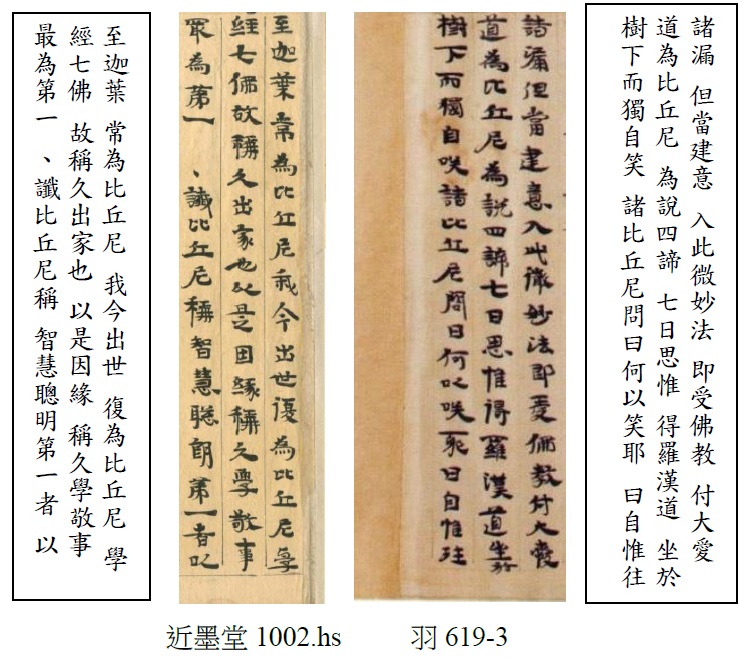 諸漏 但當建意 入此微妙法 即受佛教 付大愛
道為比丘尼 為說四諦 七日思惟 得羅漢道 坐於
樹下而獨自笑 諸比丘尼問曰何以笑耶 曰自惟往
諸漏但當建意入此微妙法即受佛教付大愛
道為比丘尼為說四諦七日思惟得羅漢道坐於
樹下而獨自咲諸比丘尼問曰何以咲耶曰自惟往
至迦葉常為比丘尼我今出世復為比丘尼學
經七佛故稱久出家也以是因緣稱久學敬事
最為第一、讖比丘尼稱智慧聡明第一者以
至迦葉 常為比丘尼 我今出世 復為比丘尼 學
經七佛 故稱久出家也 以是因緣 稱久學敬事
最為第一 、讖比丘尼稱 智慧聰明第一者 以
近墨堂 1002.hs
羽 619-3